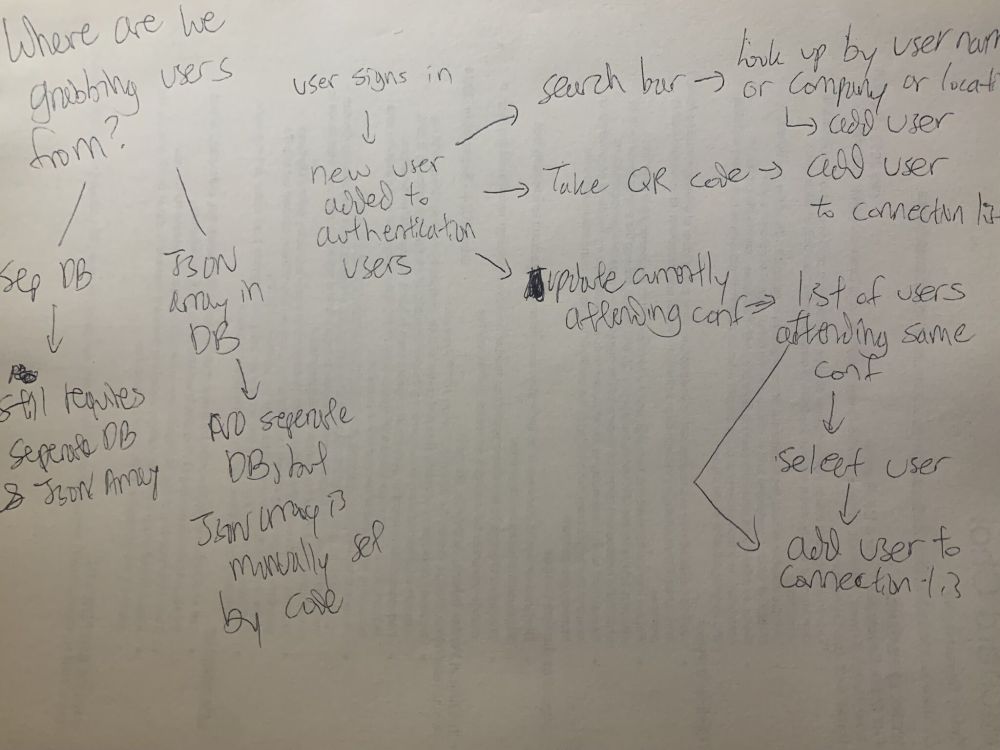 Where are we
grabbing users
from?
Sep DB
Still requires
Seperate DB
& JSON Array
JSON
Array in
DB
NO seperate
DB, but
JSON array is
manually set
by code
user signs in
new user
added to
authentication
users
search bar →
look up by user nam
or company or locati
↳ add user
Take QR code →
add user
to connection lis
update currently
attending conf →
list of users
attending same
conf
select user
add user to
connection lis